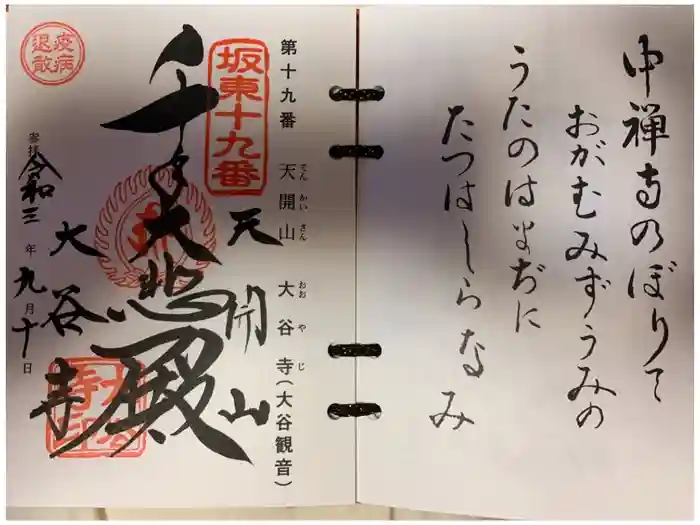 中禅寺のぼりて
おがむみずうみの
うたのはまぢに
たつはしらなみ
第十九番 天開山 大谷寺(大谷観音)
てんかいさん おおやじ
坂東十九番
天開山
千手大悲殿
大谷寺
大谷寺印
疫病退散
参拝 令和三年九月十日